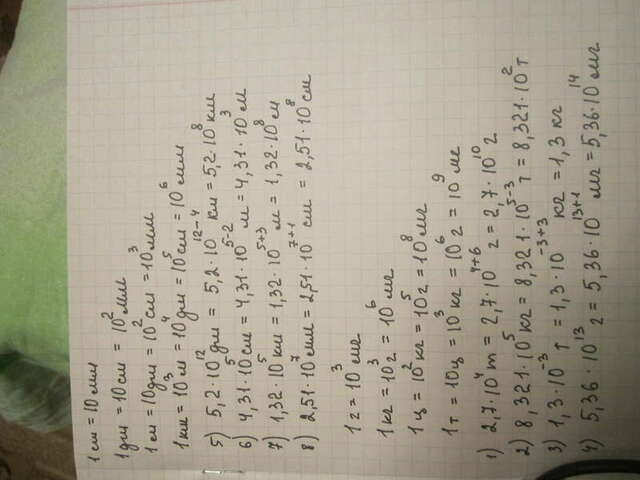 1 см = 10 мм
1 дм = 10 см = 10² мм
1 м = 10 дм = 10² см = 10³ мм
1 км = 10³ м = 10⁴ дм = 10⁵ см = 10⁶ мм
5) 5,2·10¹² дм = 5,2·10¹²⁻⁴ км = 5,2·10⁸ км
6) 4,31·10⁵ см = 4,31·10⁵⁻² м = 4,31·10³ м
7) 1,32·10⁵ км = 1,32·10⁵⁺³ м = 1,32·10⁸ м
8) 2,51·10⁷ мм = 2,51·10⁷⁺¹ см = 2,51·10⁸ см
1 г = 10³ мг
1 кг = 10³ г = 10⁶ мг
1 ц = 10² кг = 10⁵ г = 10⁸ мг
1 т = 10 ц = 10³ кг = 10⁶ г = 10⁹ мг
1) 2,7·10⁴ т = 2,7·10⁴⁺⁶ г = 2,7·10¹⁰ г
2) 8,321·10⁵ кг = 8,321·10⁵⁻³ т = 8,321·10² т
3) 1,3·10⁻³ т = 1,3·10⁻³⁺³ кг = 1,3 кг
4) 5,36·10¹³ г = 5,36·10¹³⁺¹ мг = 5,36·10¹⁴ мг